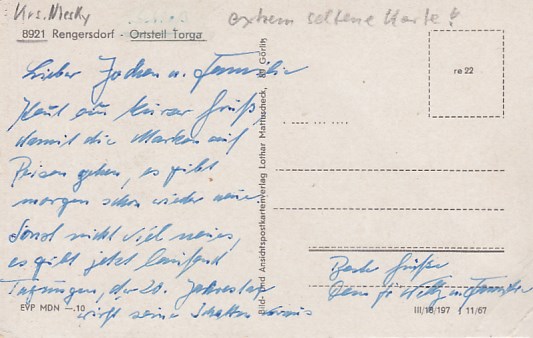 Krs. Niesky
extrem seltene Karte!
8921 Rengersdorf - Ortsteil Torga
Lieber Jochen u. Familie
Heut ein kurzer Gruß,
damit die Marken auf
Reisen gehen, es gibt
morgen schon wieder neue.
Sonst nicht viel neues,
es gibt jetzt laufend
Tagungen, der 20. Jahrestag
wirft seine Schatten voraus
EVP MDN —.10
Bild- und Ansichtspostkartenverlag Lothar Mathscheck, 89 Görlitz
re 22
Beste Grüße
u. Familie
III/18/197 11/67